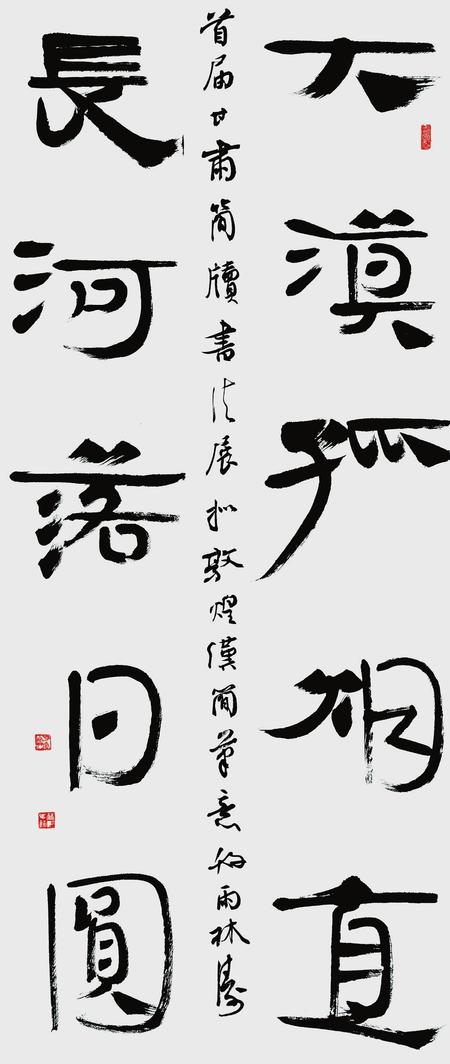 大漠孤烟直
長河落日圓
首届甘肅簡牘書法展拟敦煌漢簡筆意雨林濤